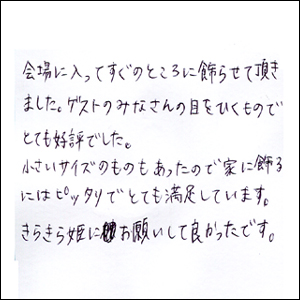 会場に入ってすぐのところに飾らせて頂き
ました。ゲストのみなさんの目をひくもので
とても好評でした。
小さいサイズのものもあったので家に飾る
にはピッタリでとても満足しています。
きらきら姫にお願いして良かったです。